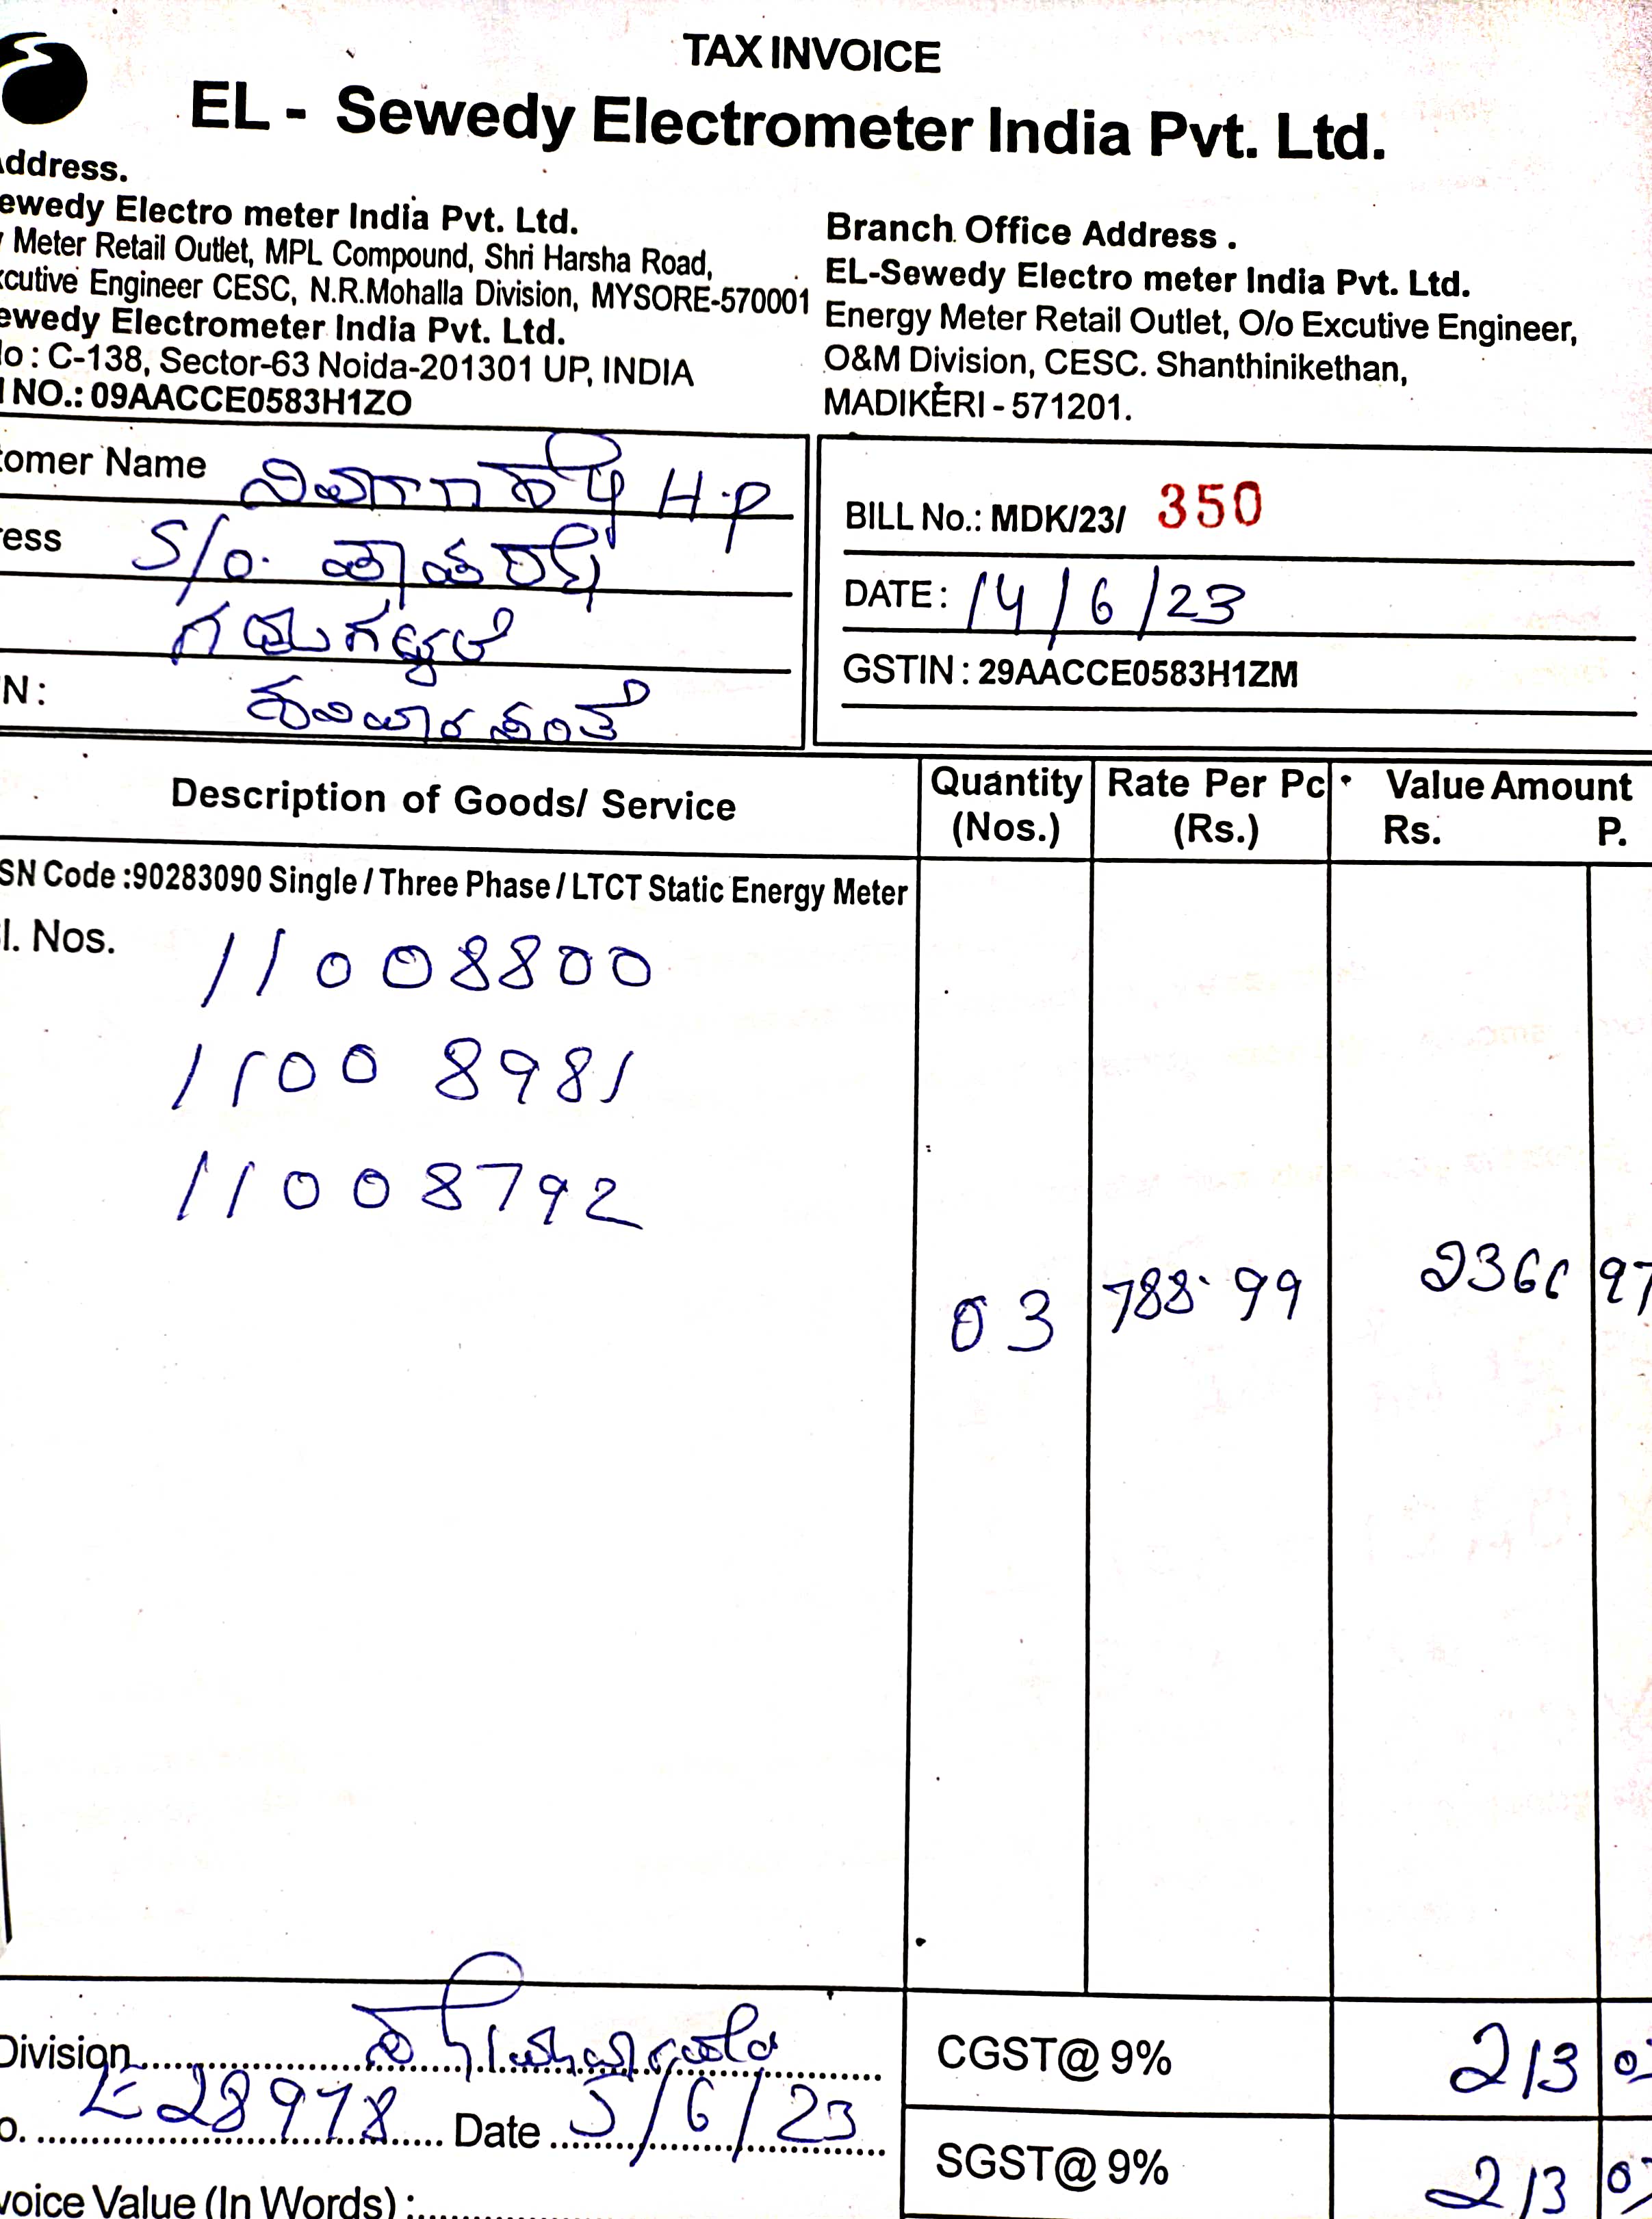 TAX INVOICE
EL - Sewedy Electrometer India Pvt. Ltd.
ddress.
ewedy Electro meter India Pvt. Ltd.
Meter Retail Outlet, MPL Compound, Shri Harsha Road,
cutive Engineer CESC, N.R.Mohalla Division, MYSORE-570001
ewedy Electrometer India Pvt. Ltd.
o : C-138, Sector-63 Noida-201301 UP, INDIA
NO.: 09AACCE0583H1ZO
Branch Office Address .
EL-Sewedy Electro meter India Pvt. Ltd.
Energy Meter Retail Outlet, O/o Excutive Engineer,
O&M Division, CESC. Shanthinikethan,
MADIKERI - 571201.
omer Name H.P
ess S/o.
N : ಶನಿವಾರಸಂತೆ
BILL No.: MDK/23/ 350
DATE : 14/6/23
GSTIN : 29AACCE0583H1ZM
Description of Goods/ Service
Quantity (Nos.)
Rate Per Pc (Rs.)
Value Amount
Rs. P.
SN Code :90283090 Single / Three Phase / LTCT Static Energy Meter
l. Nos. 11008800
11008981
11008792
03 788.99 2366 97
Division
o. 28978 Date 5/6/23
voice Value (In Words) :
CGST@ 9% 213
SGST@ 9% 213